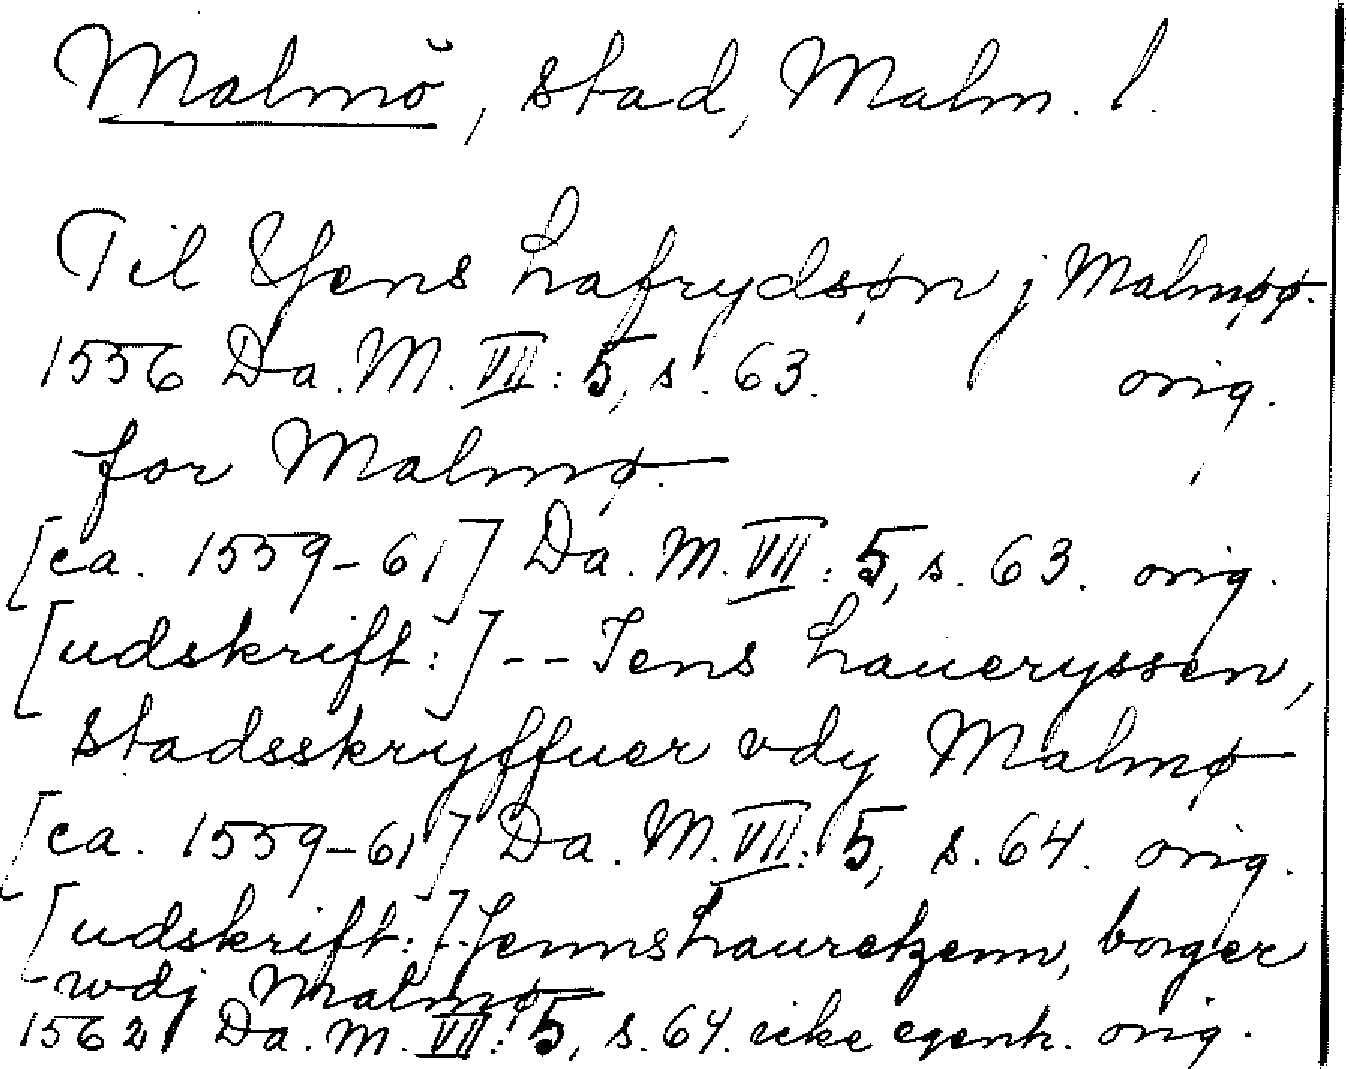 Malmö, stad, Malm. l.
Til Yens Lafrydsøn j Malmøø.
1556 Da. M. VII: 5, s. 63. orig.
for Malmø.
[ca. 1559-61] Da. M. VII: 5, s. 63. orig.
[udskrift:] -- Iens Laueryssen,
stadsskryffuer vdy Malmø
[ca. 1559-61] Da. M. VII: 5, s. 64. orig.
[udskrift:] -- Jenns Lauretzenn, borger
wdj Malmø
1562 Da. M. VII: 5, s. 64. icke egenh. orig.